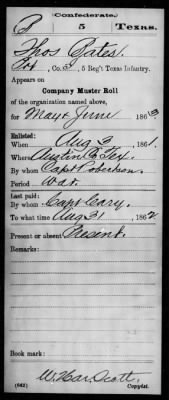 (Confederate.)
P 5 Texas.
Thos Pates.
Pvt, Co. I, 5 Reg't Texas Infantry.
Appears on
Company Muster Roll
of the organization named above,
for May & June, 1863.
Enlisted:
When Aug 3, 1861.
Where Austin Co Tex.
By whom Capt Roberdson.
Period War.
Last paid:
By whom Capt Cary.
To what time Aug 31, 1862.
Present or absent Present.
Remarks:
Book mark:
W. Scott.
(642) Copyist.